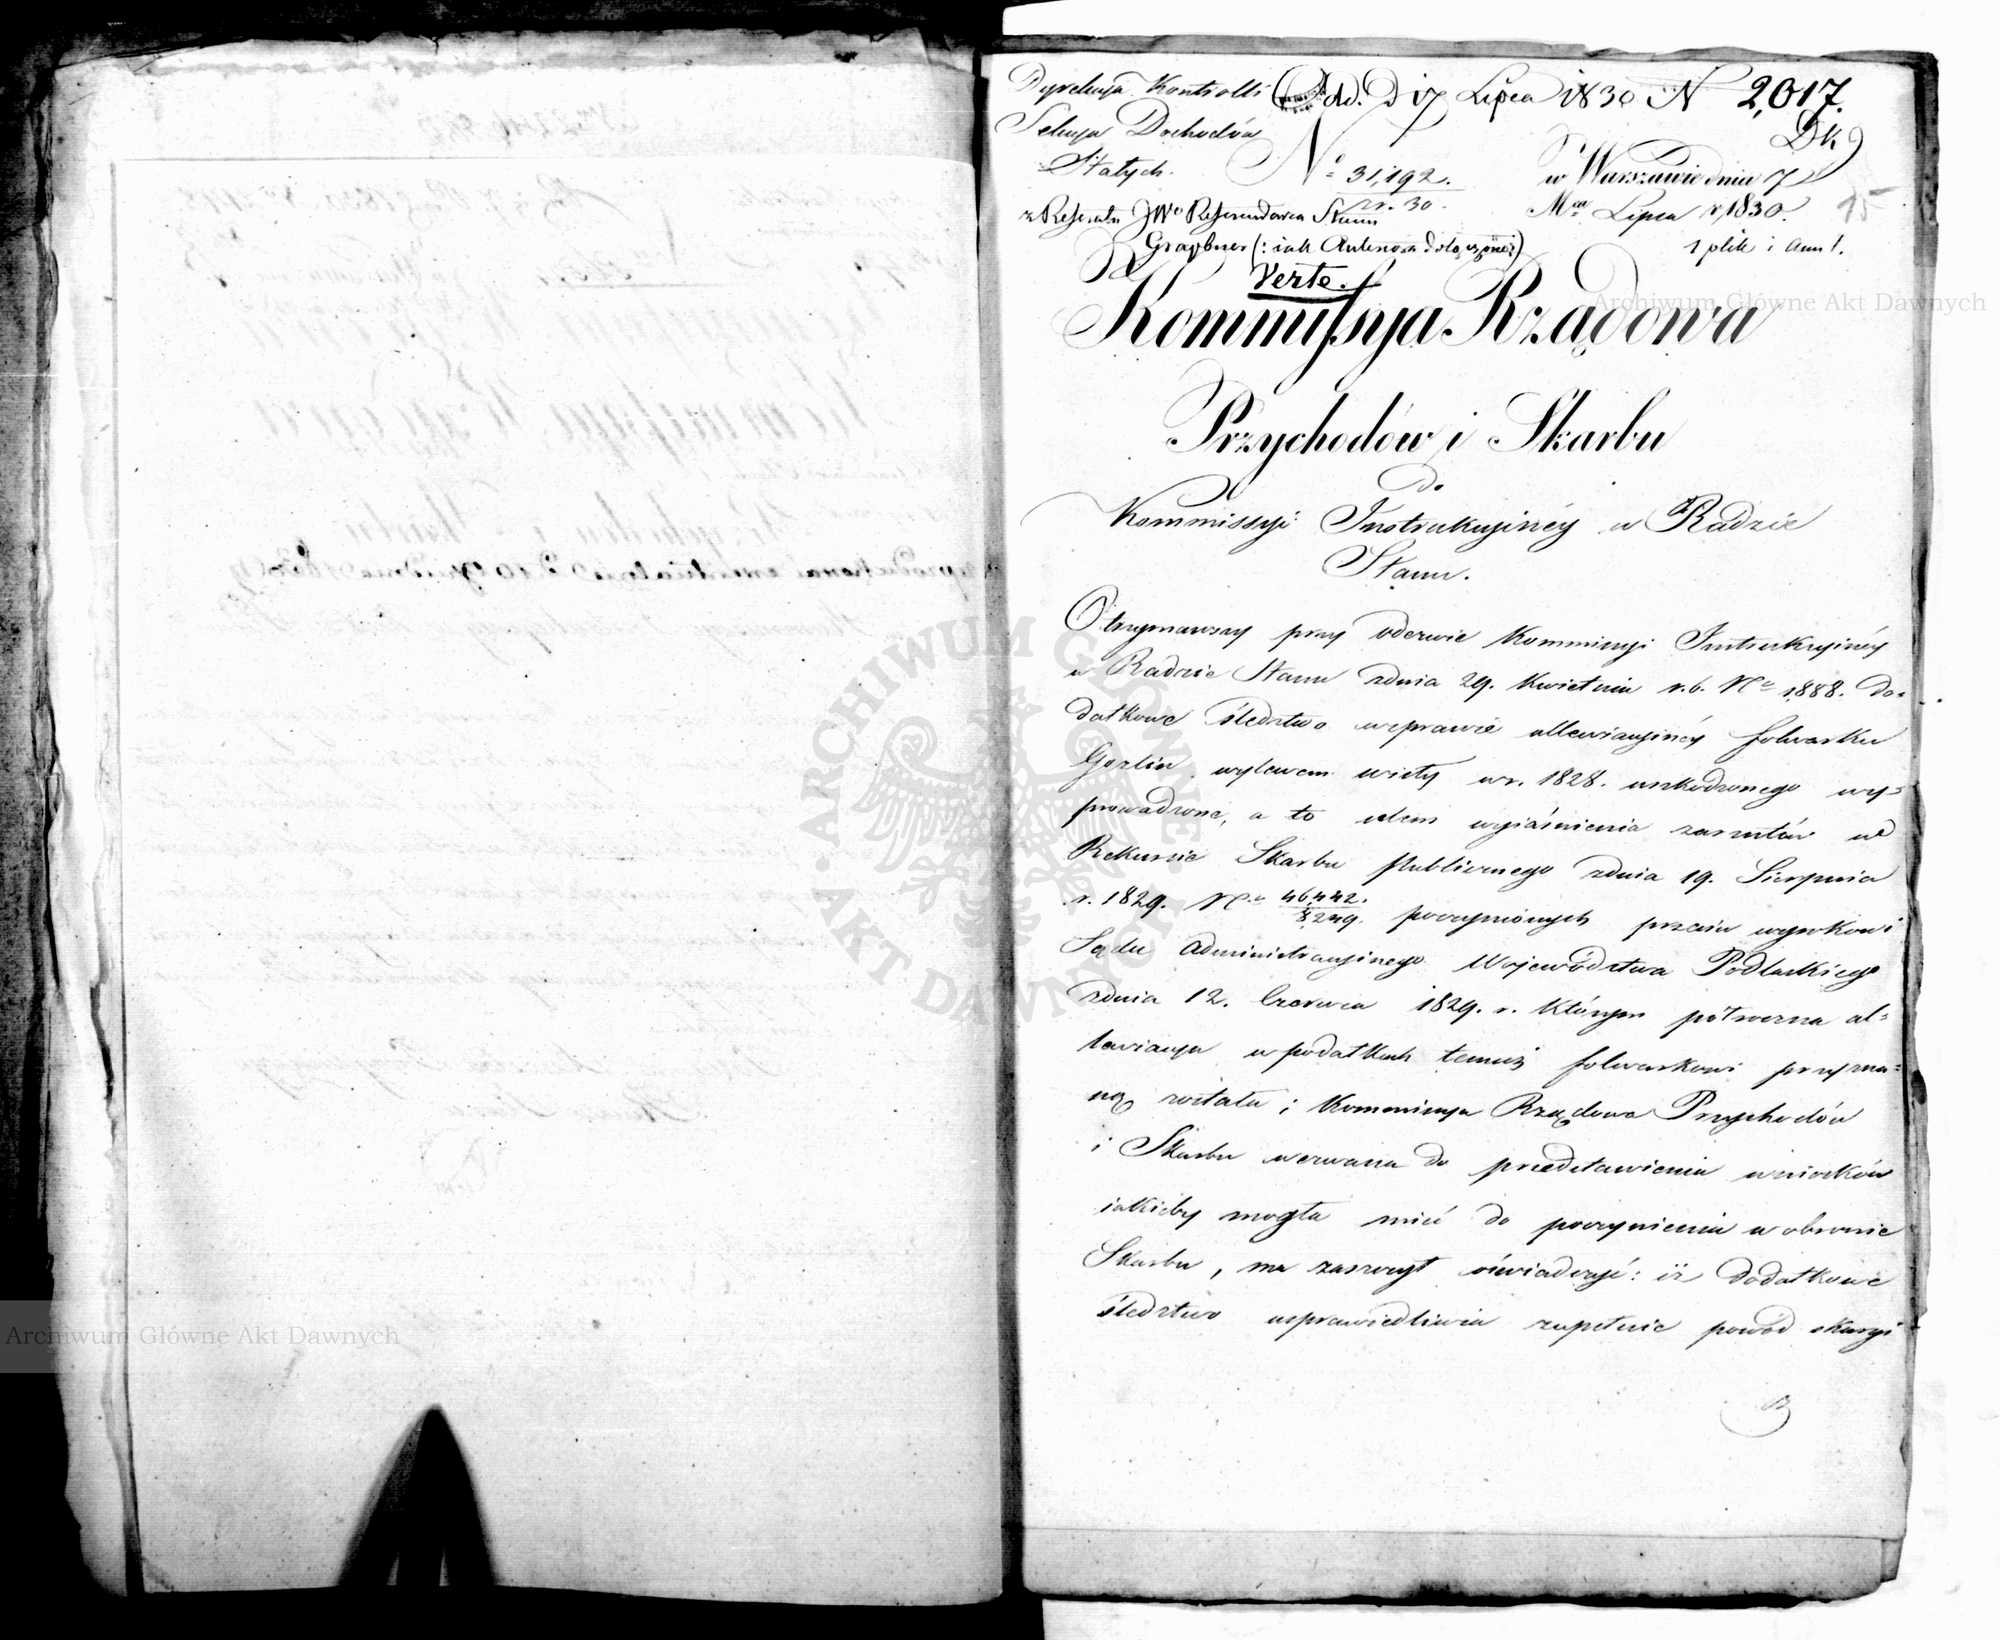 Dyrekcya Kontrolli
Sekcya Dochodów
Stałych.
d. 17 Lipca 1830 N 2,017.
Dk
N° 31,192.
r. 30.
w Warszawie dnia 7
Mca Lipca r, 1830.
15
z Referatu JWo Referendarza Stanu
Graybner (: iak Antenora dołączone :)
1 plik i Ann 1.
Verte.
Kommissyja Rządowa
Przychodów i Skarbu
do
Kommissyi Instrukcyinéy w Radzie
Stanu.
Otrzymawszy przy odezwie Kommissyi Instrukcyinéy
w Radzie Stanu zdnia 29. Kwietnia r. b. No 1888. do-
datkowe śledztwo wsprawie allewiacyinéy folwarku
Gozlin wylewem wisły w r. 1828. uszkodzonego wy-
prowadzone, a to celem wyiaśnienia zarzutów w
Rekursie Skarbu Publicznego zdnia 19. Sierpnia
r. 1829. No 46,442.
8249. poczynionych przeciw wyrokowi
Sądu Administracyinego Województwa Podlaskiego
zdnia 12. Czerwca 1829. r. którym półroczna al-
lewiacya w podatkach temuż folwarkowi przyzna-
ną została; Kommissya Rządowa Przychodów
i Skarbu wezwana do przedstawienia wniosków
iakieby mogła mieć do poczynienia w obronie
Skarbu, ma zaszczyt oświadczyć: iż dodatkowe
śledztwo usprawiedliwia zupełnie powód skargi
Archiwum Główne Akt Dawnych
ARCHIWUM GŁÓWNE AKT DAWNYCH
Archiwum Główne Akt Dawnych